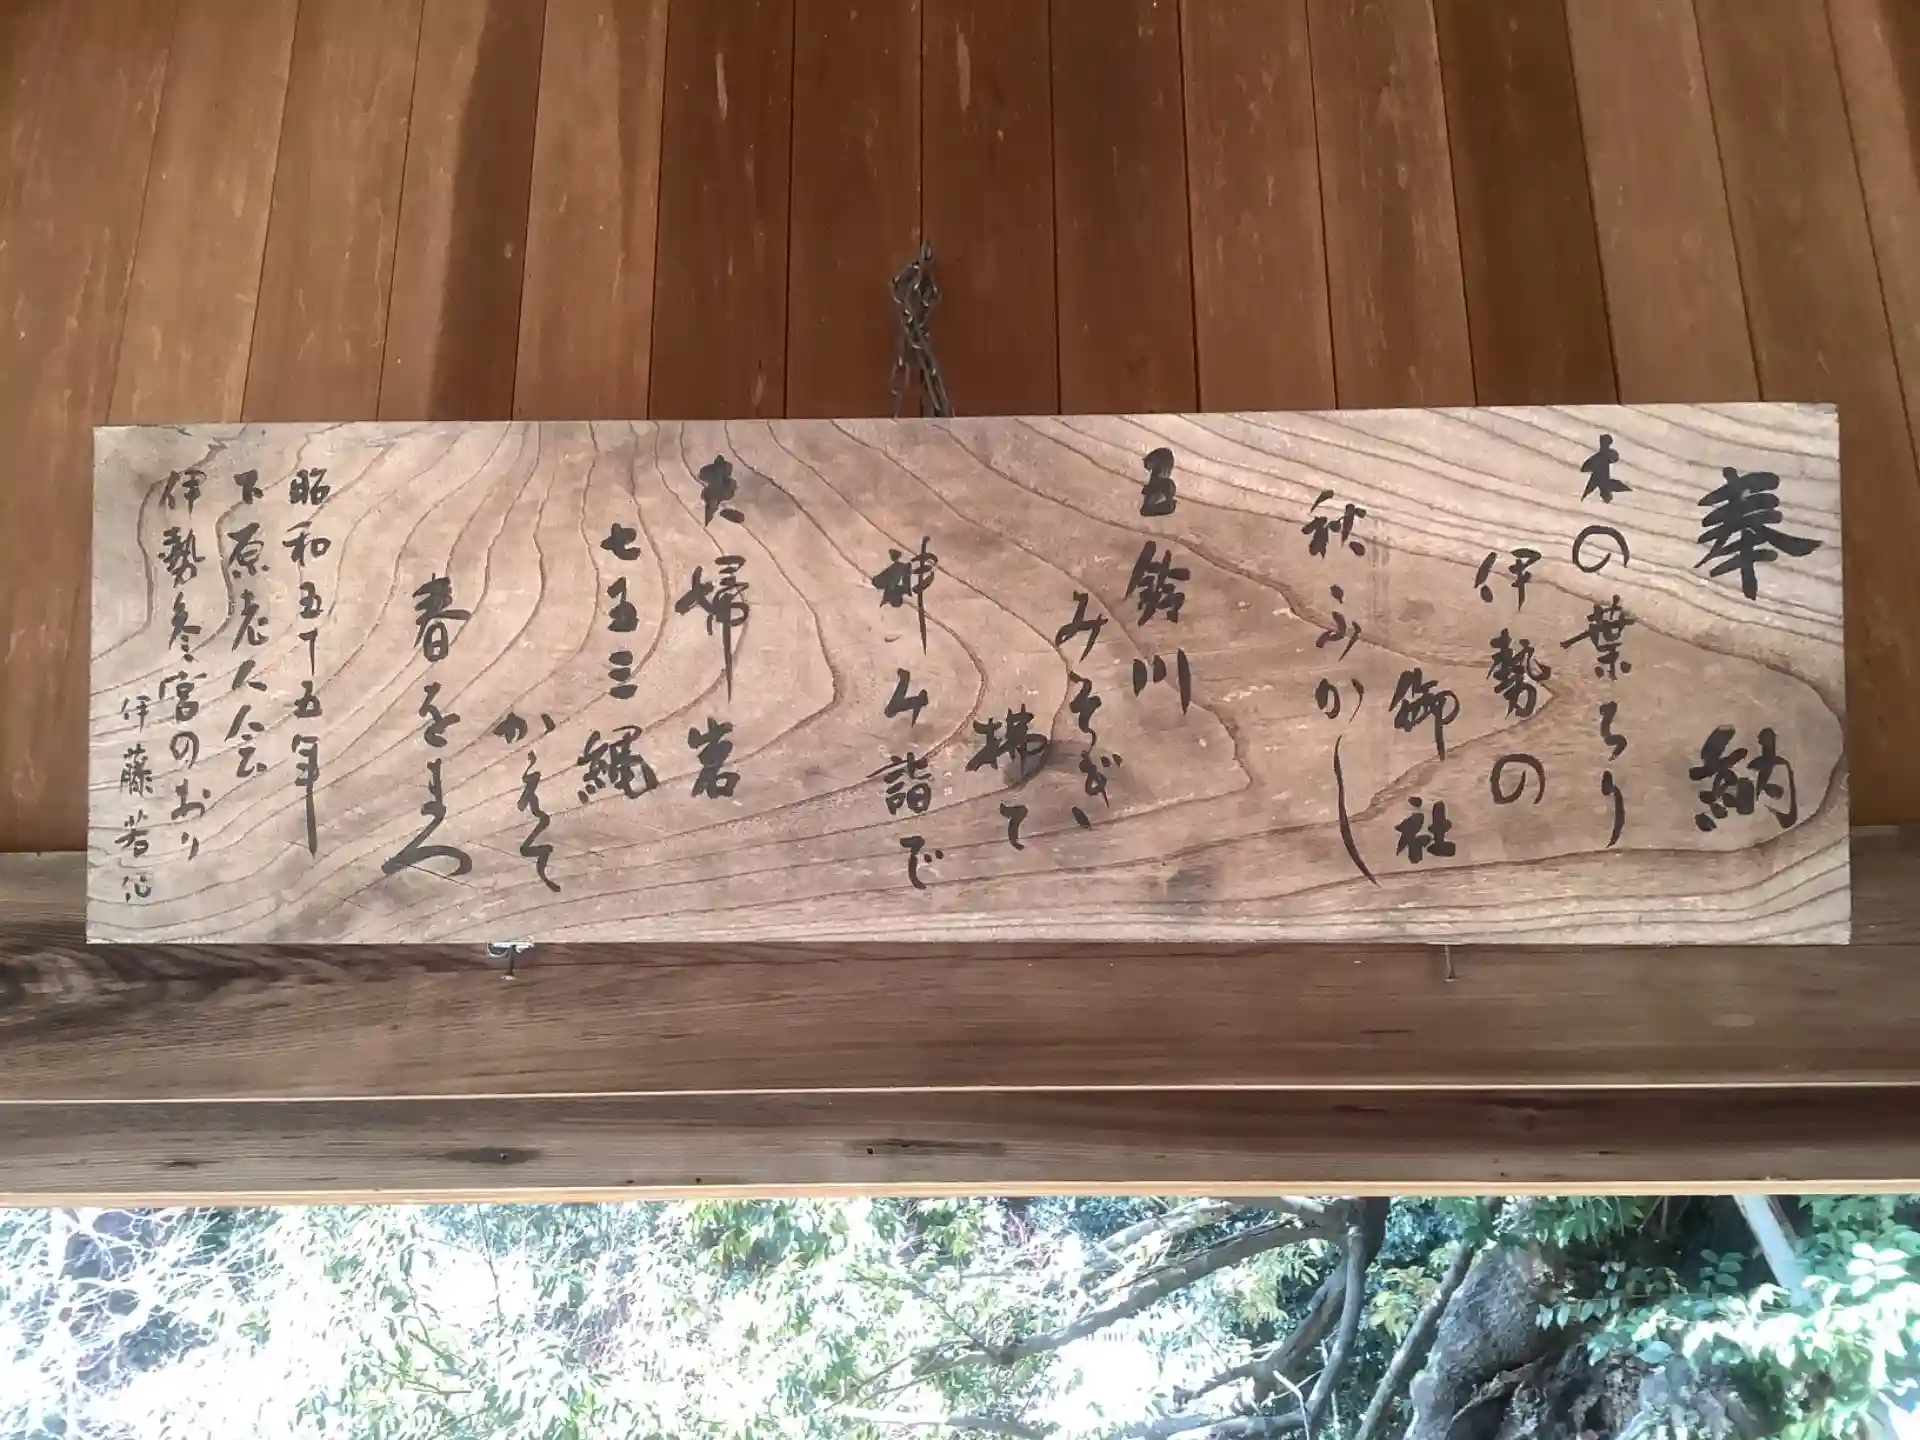 奉納
木の葉ちり
伊勢の
御社
秋ふかし
五鈴川
みそぎゝ
梻て
神々詣で
夫婦岩
七五三縄
かえて
春をまつ
昭和五十五年
下原老人会
伊勢参宮のおり
伊藤若